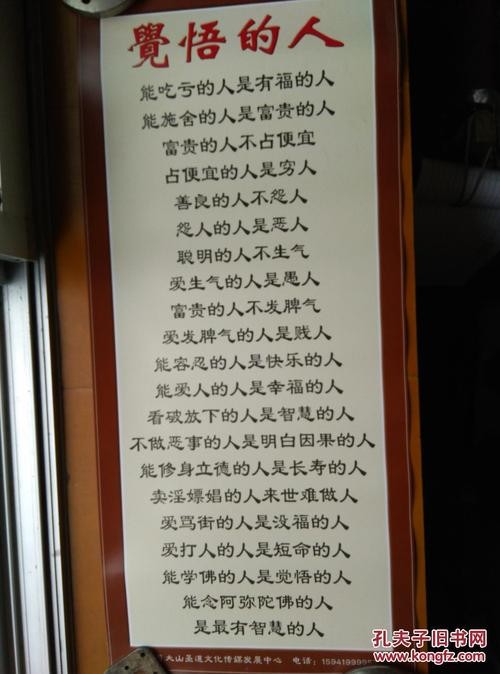 覺悟的人
能吃亏的人是有福的人
能施舍的人是富贵的人
富贵的人不占便宜
占便宜的人是穷人
善良的人不怨人
怨人的人是恶人
聪明的人不生气
爱生气的人是愚人
富贵的人不发脾气
爱发脾气的人是贱人
能容忍的人是快乐的人
能爱人的人是幸福的人
看破放下的人是智慧的人
不做恶事的人是明白因果的人
能修身立德的人是长寿的人
卖淫嫖娼的人来世难做人
爱骂街的人是没福的人
爱打人的人是短命的人
能学佛的人是觉悟的人
能念阿弥陀佛的人
是最有智慧的人
大山圣道文化传媒发展中心 电话：159419999
孔夫子旧书网